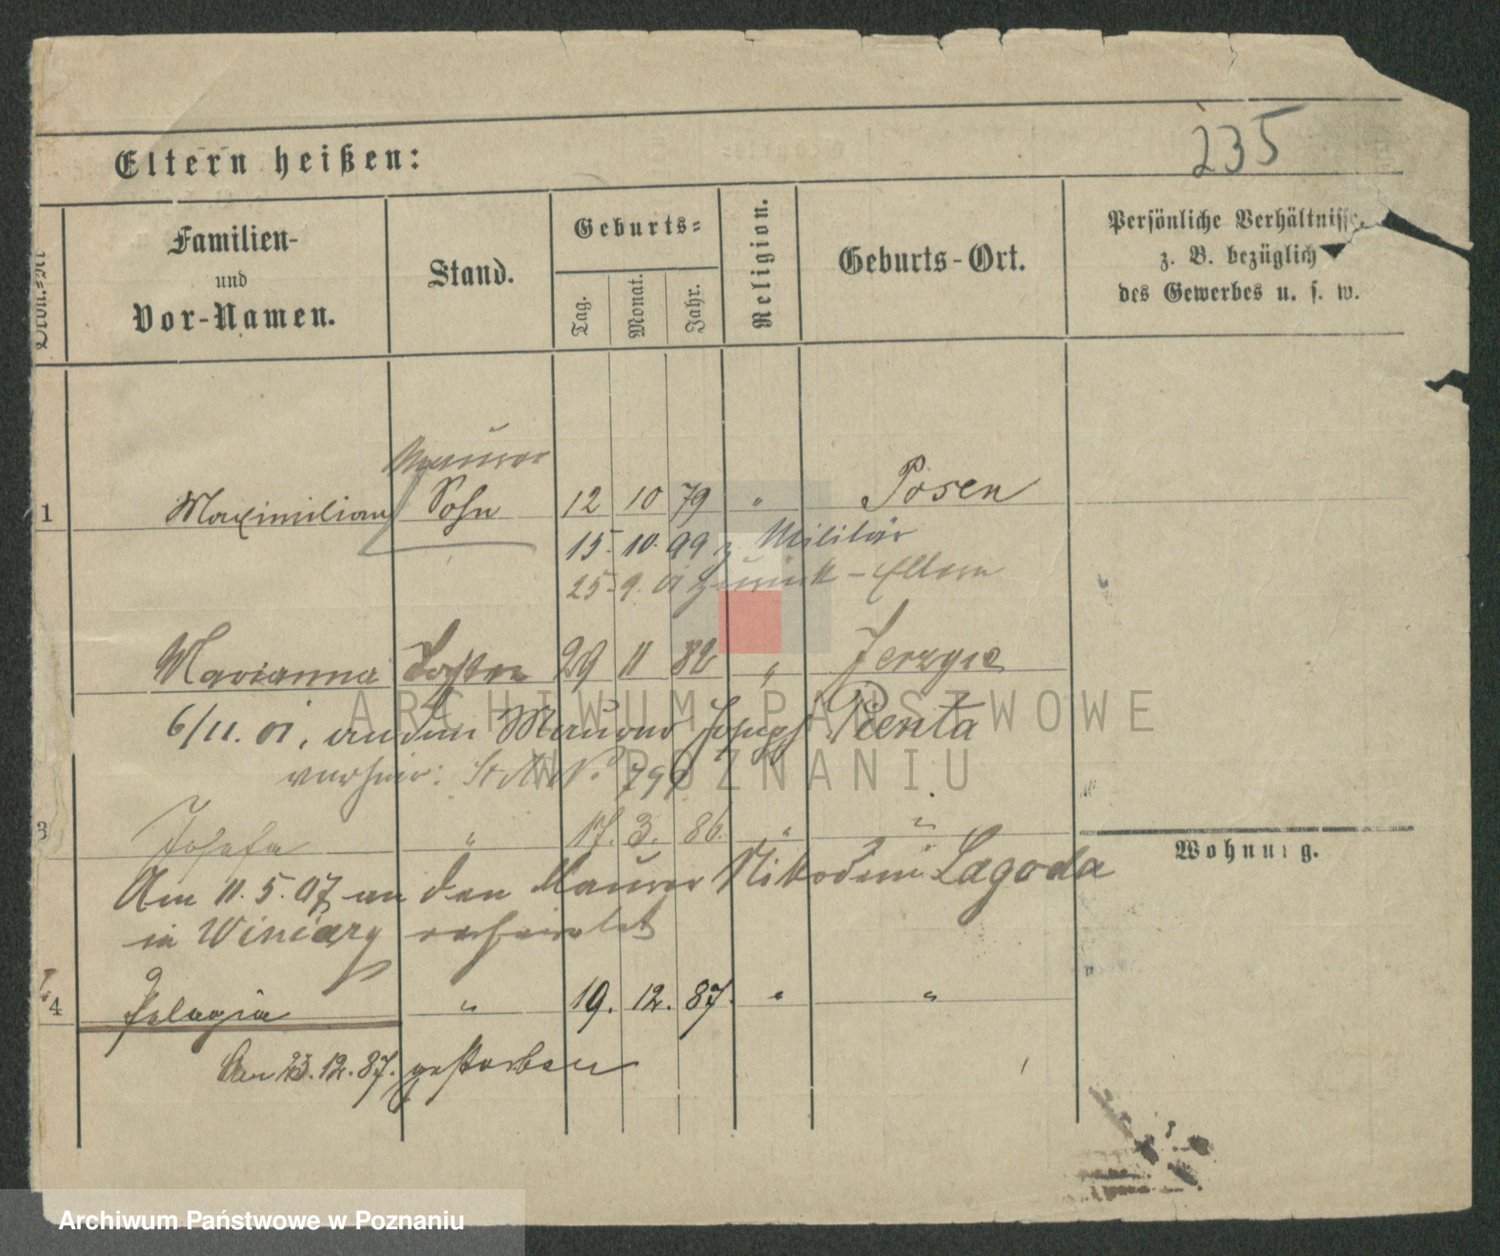 235
Eltern heißen:
Ordn.-Nr
Familien-
und
Vor-Namen.
Stand.
Geburts-
Tag.
Monat.
Jahr.
Religion.
Geburts-Ort.
Persönliche Verhältnisse
z. B. bezüglich
des Gewerbes u. s. w.
Maurer
1 Maximilian Sohn 12 10 79 " Posen
15. 10. 99 z. Militär
25. 9. 01 zurück - Eltern
Marianna Tochter 29 11 82 " Jerzyce
6/11. 01, an den Maurer Joseph Pienta
verheir: St A N. 799
3 Josefa " 17. 3. 86. " "
Am 11. 5. 07 an den Maurer Nikodem Lagoda
in Winiary verheiratet
4 Pelagia " 19. 12. 87. " "
Am 23. 12. 87. gestorben
Wohnung.
ARCHIWUM PAŃSTWOWE
W POZNANIU
Archiwum Państwowe w Poznaniu